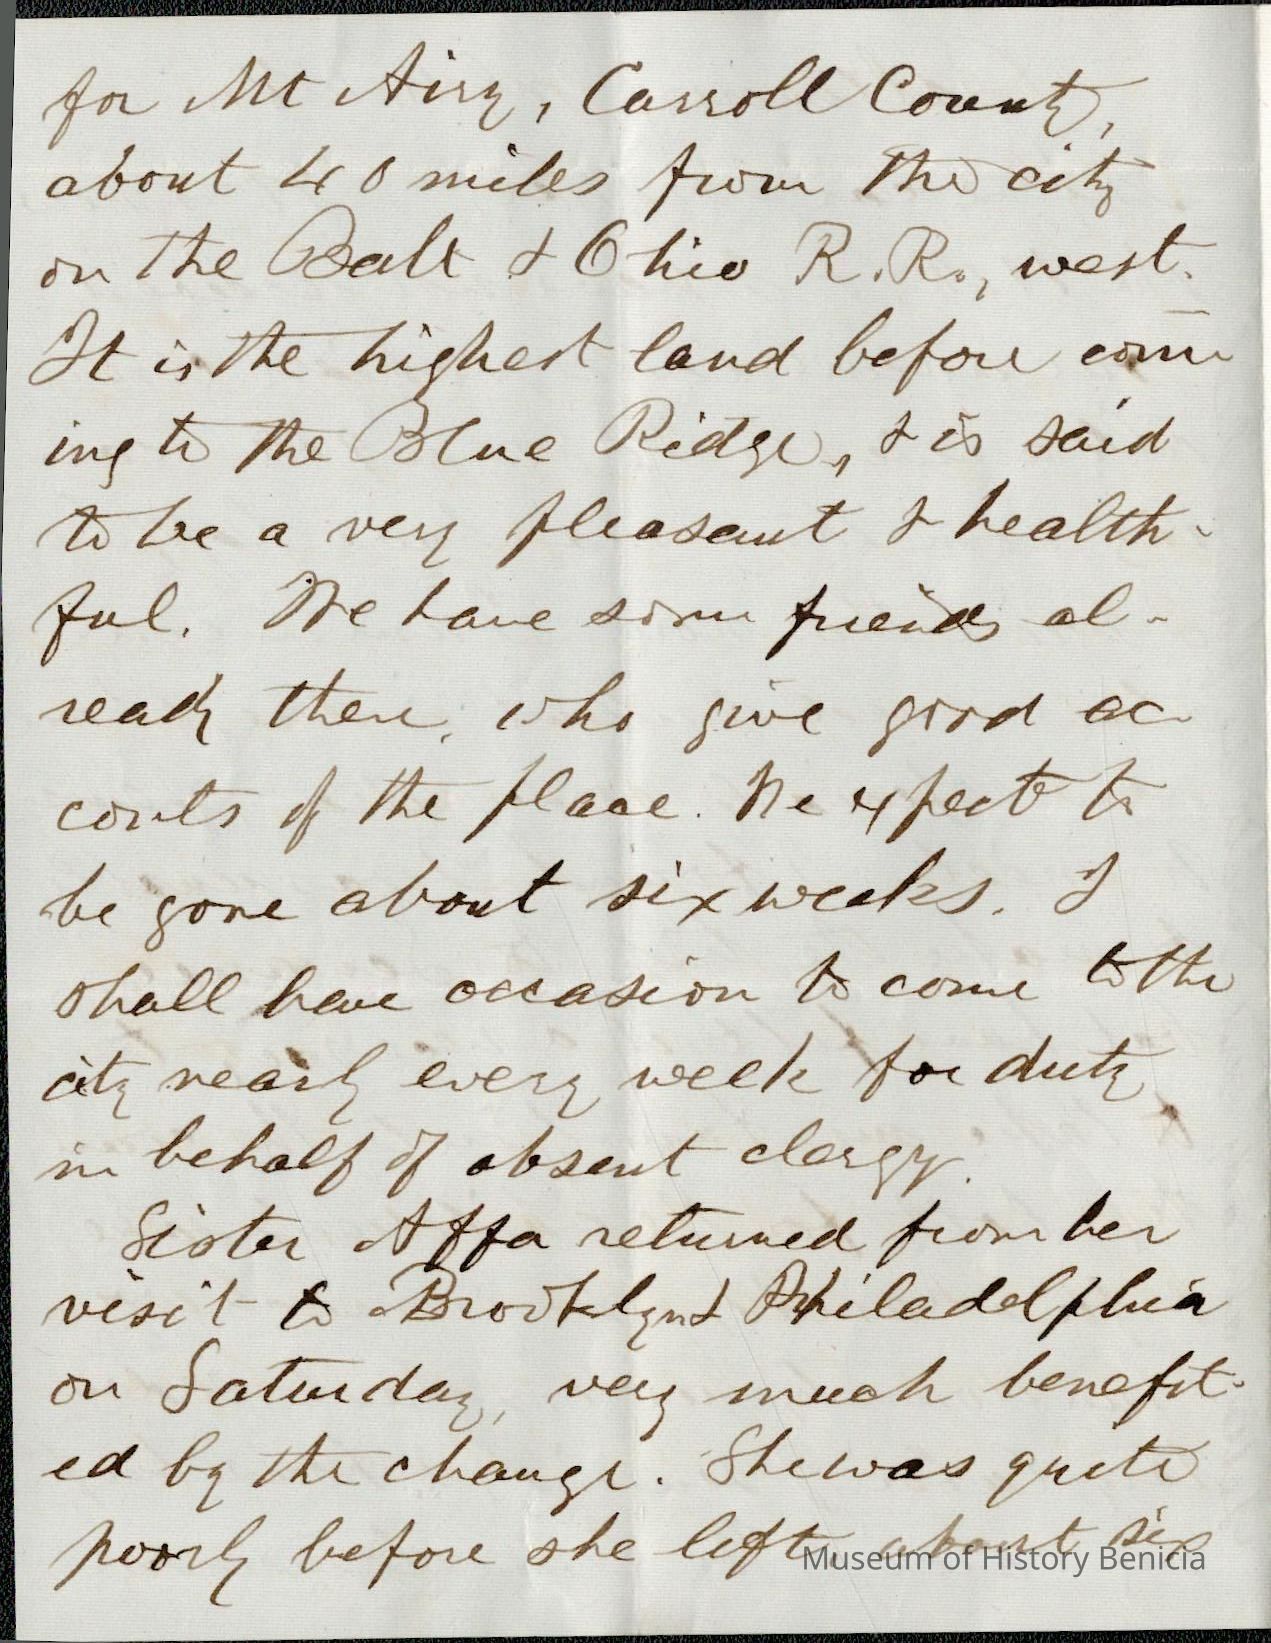 for Mt Airy, Carroll County,
about 40 miles from the city
on the Balt & Ohio R.R., west.
It is the highest land before com
ing to the Blue Ridge, & is said
to be a very pleasant & health-
ful. We have some friends al-
ready there, who give good ac-
conts of the place. We expect to
be gone about six weeks. I
shall have occasion to come to the
city nearly every week for duty
in behalf of absent clergy.
Sister Affa returned from her
visit to Brooklyn & Philadelphia
on Saturday, very much benefit-
ed by the change. She was quite
poorly before she left, about six
Museum of History Benicia